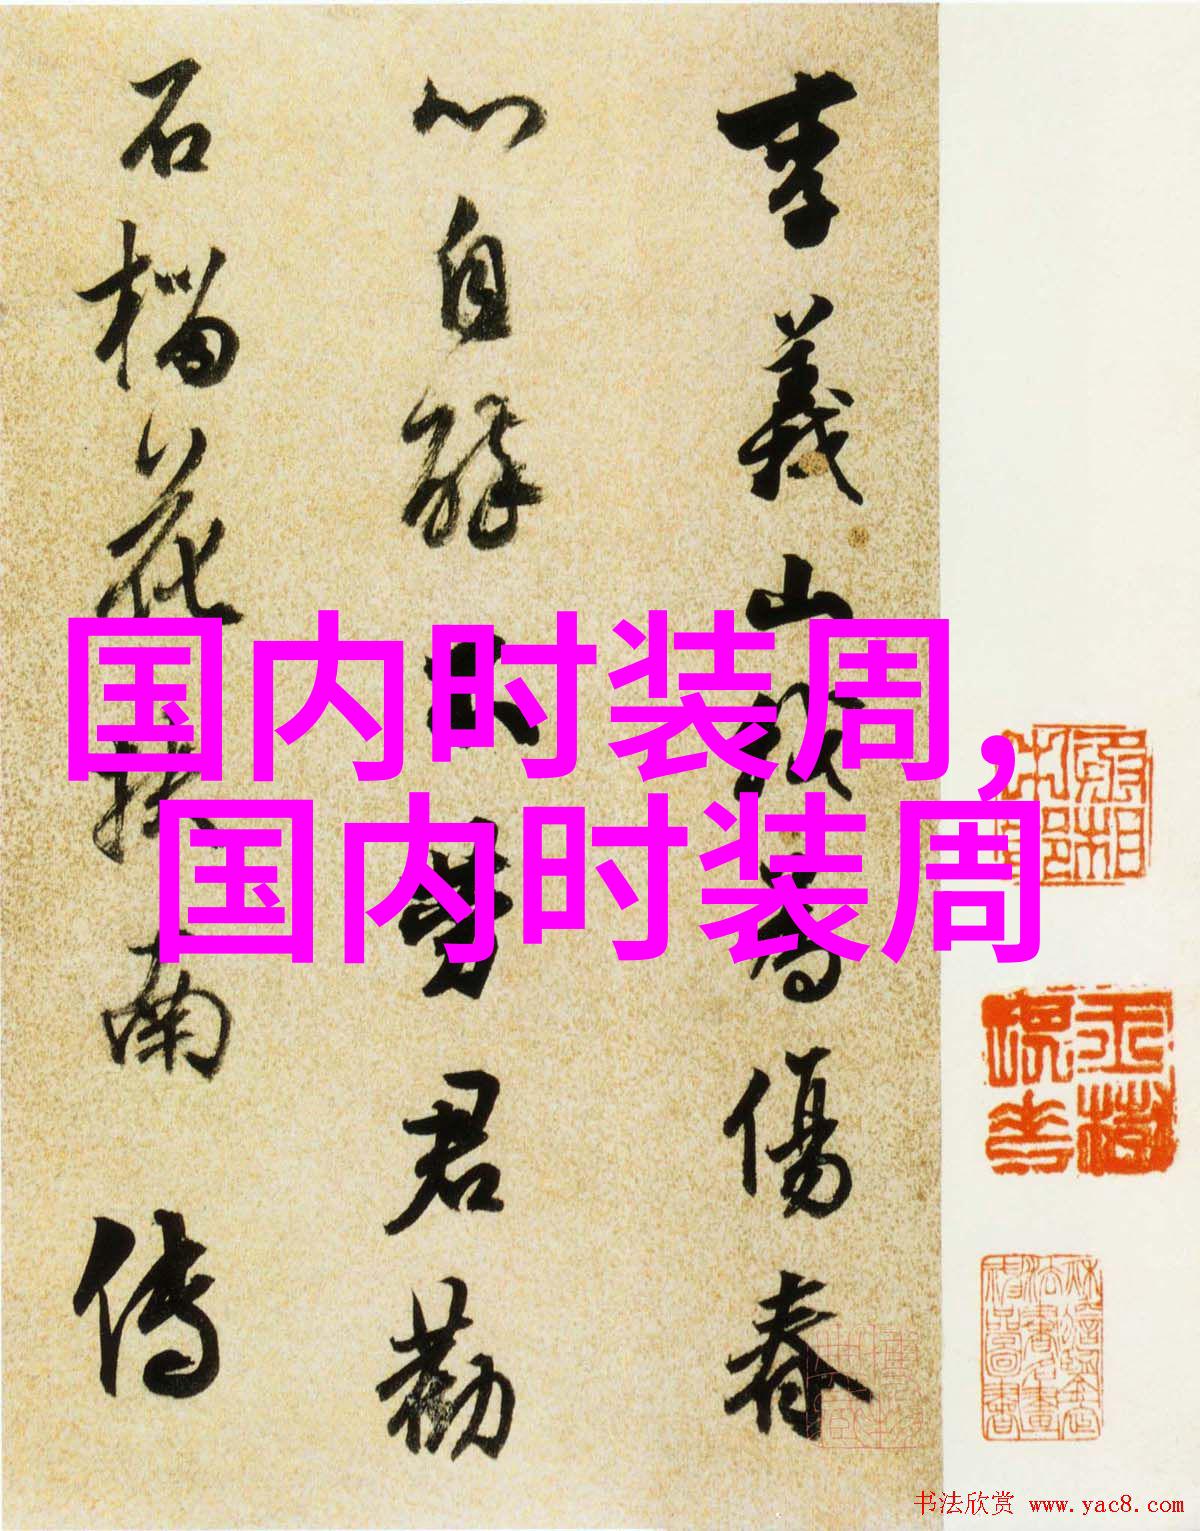 国内时装周,
国内时装周
李義山我為傷春
心自醉不勞君勸
石榴花扶南傳
书法欣赏 www.yac8.com